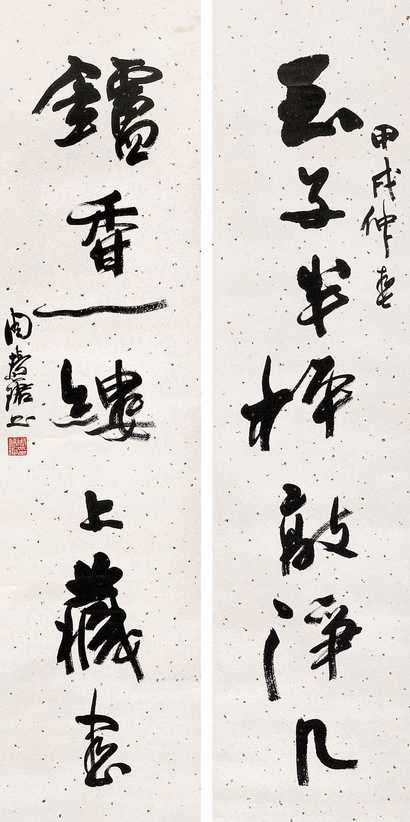 甲戌仲春
玉子半枰敲淨几
鑪香一縷上藏書
周慧珺書